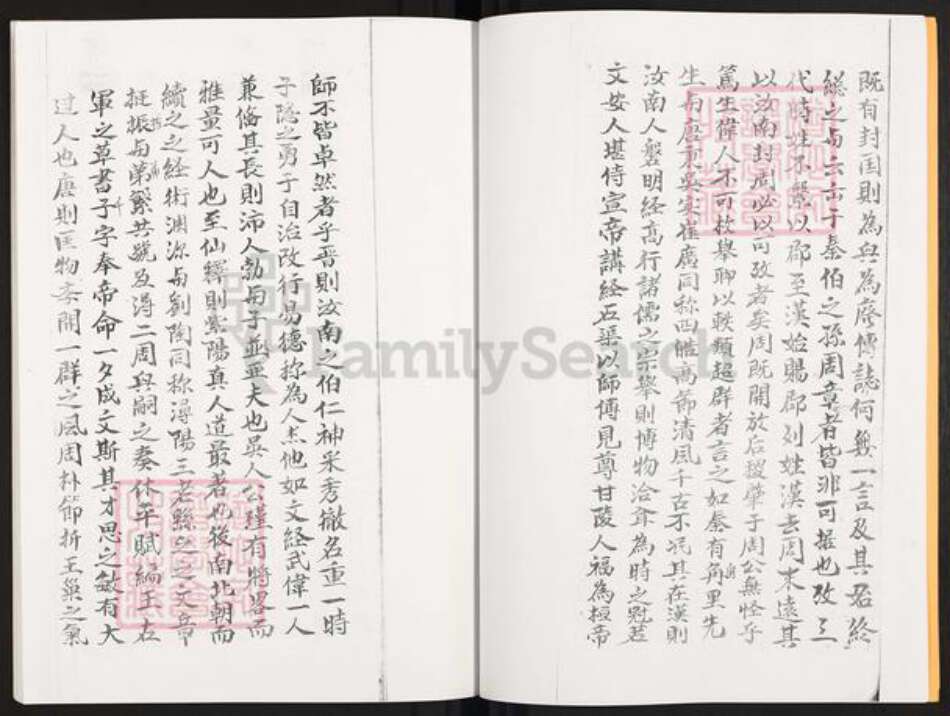 既有封国則為與為廖傳誌何無一言及其君終
總之与云出于秦伯之孫周章者皆非可據也攷三
代時姓不繫以郡至漢始賜郡列姓漢去周末遠其
以汝南封周必以可攷者矣周既開放后稷肇于周公無怪乎
篤生偉人不可枚舉聊以軼類超群者言之如秦有角里先
生与唐宣吳實崔廣同称四皓高節清風千古不泯其在漢則
汝南人磐明經高行諸儒之宗舉則博物洽聞為時之冠若
文安人堪侍宣帝講經石渠以師傅見尊甘陵人福為桓帝
師不皆卓然者乎晋則汝南之伯仁神采秀徹名重一時
子隐之勇于自治改行易德称為人杰他如文經武偉一人
兼俻其長則沛人勃与子並亜夫也吳人公瑾有將畧而
雅量可人也至仙繹則紫陽真人道最著也後南北朝而
續之之經術渊源与劉陶同称潯陽三老縣之之文章
挺振与弟繁共號及得二周與嗣之奏休平賦緬王右
軍之草書子字奉帝命一夕成文斯其才思之敏有大
过人也唐則匡物委開一群之風周朴節折王巢之氣
FamilySearch